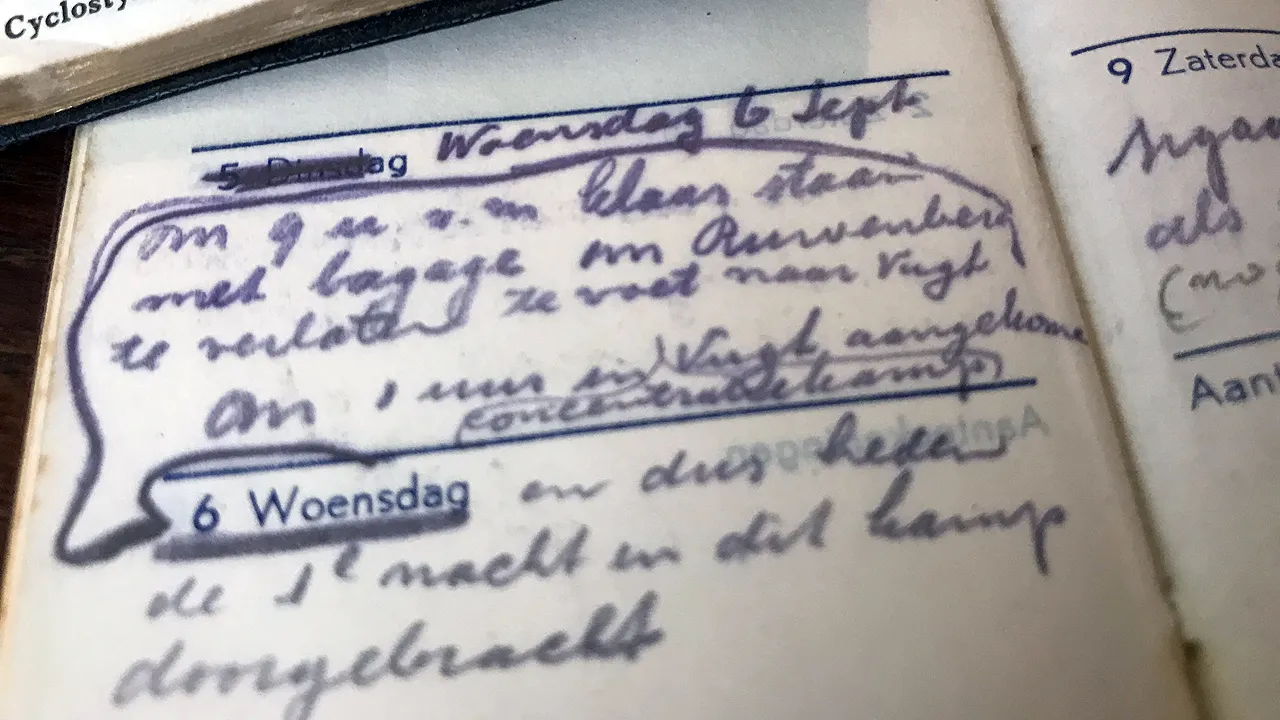 Cyclosty
5 Dinsdag Woensdag 6 Sept
om 9 u. v.m klaar staan
met bagage om Ruwenberg
te verlaten te voet naar Vught
om 1 uur in Vught aangekome
(concentratiekamp)
6 Woensdag en dus heden
de 1e nacht in dit kamp
doorgebracht
9 Zaterda
als
(mo
Aant